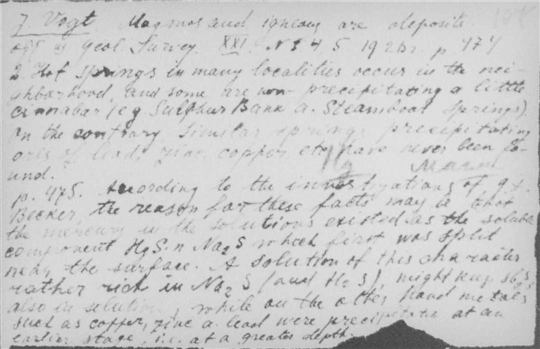 J. Vogt. Magmas and igneous are deposits.
Geol. Survey XXI. No 4 5 192 p. 474
2. Hot springs in many localities occur in the nei-
ghborhood, and some are now precipitating a little
cinnabar (e.g. Sulphur Bank a. Steamboat Springs).
On the contrary similar springs precipitating
ores of lead, zinc, copper etc. have never been fo-
und.
p. 475. According to the investigations of
Becker, the reason for these facts may be that
the mercury in the solutions existed as the soluble
component H₂S. n Na₂S which first was split
near the surface. A solution of this character
rather rich in Na₂S (and H₂S), might keep
also in solution, while on the other hand metals
such as copper, zinc a. lead were precipitated at an
earlier stage, i.e. at a greater depth.